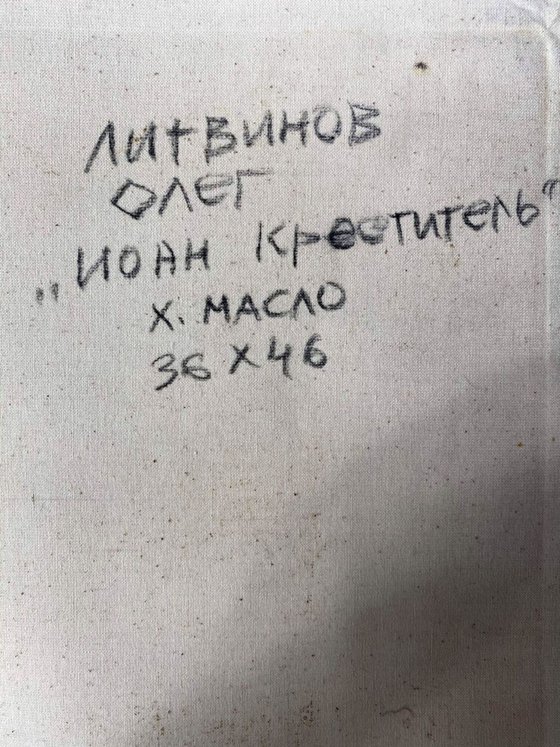 ЛИТВИНОВ
ОЛЕГ
„ИОАН Креститель"
Х. МАСЛО
36 Х 46